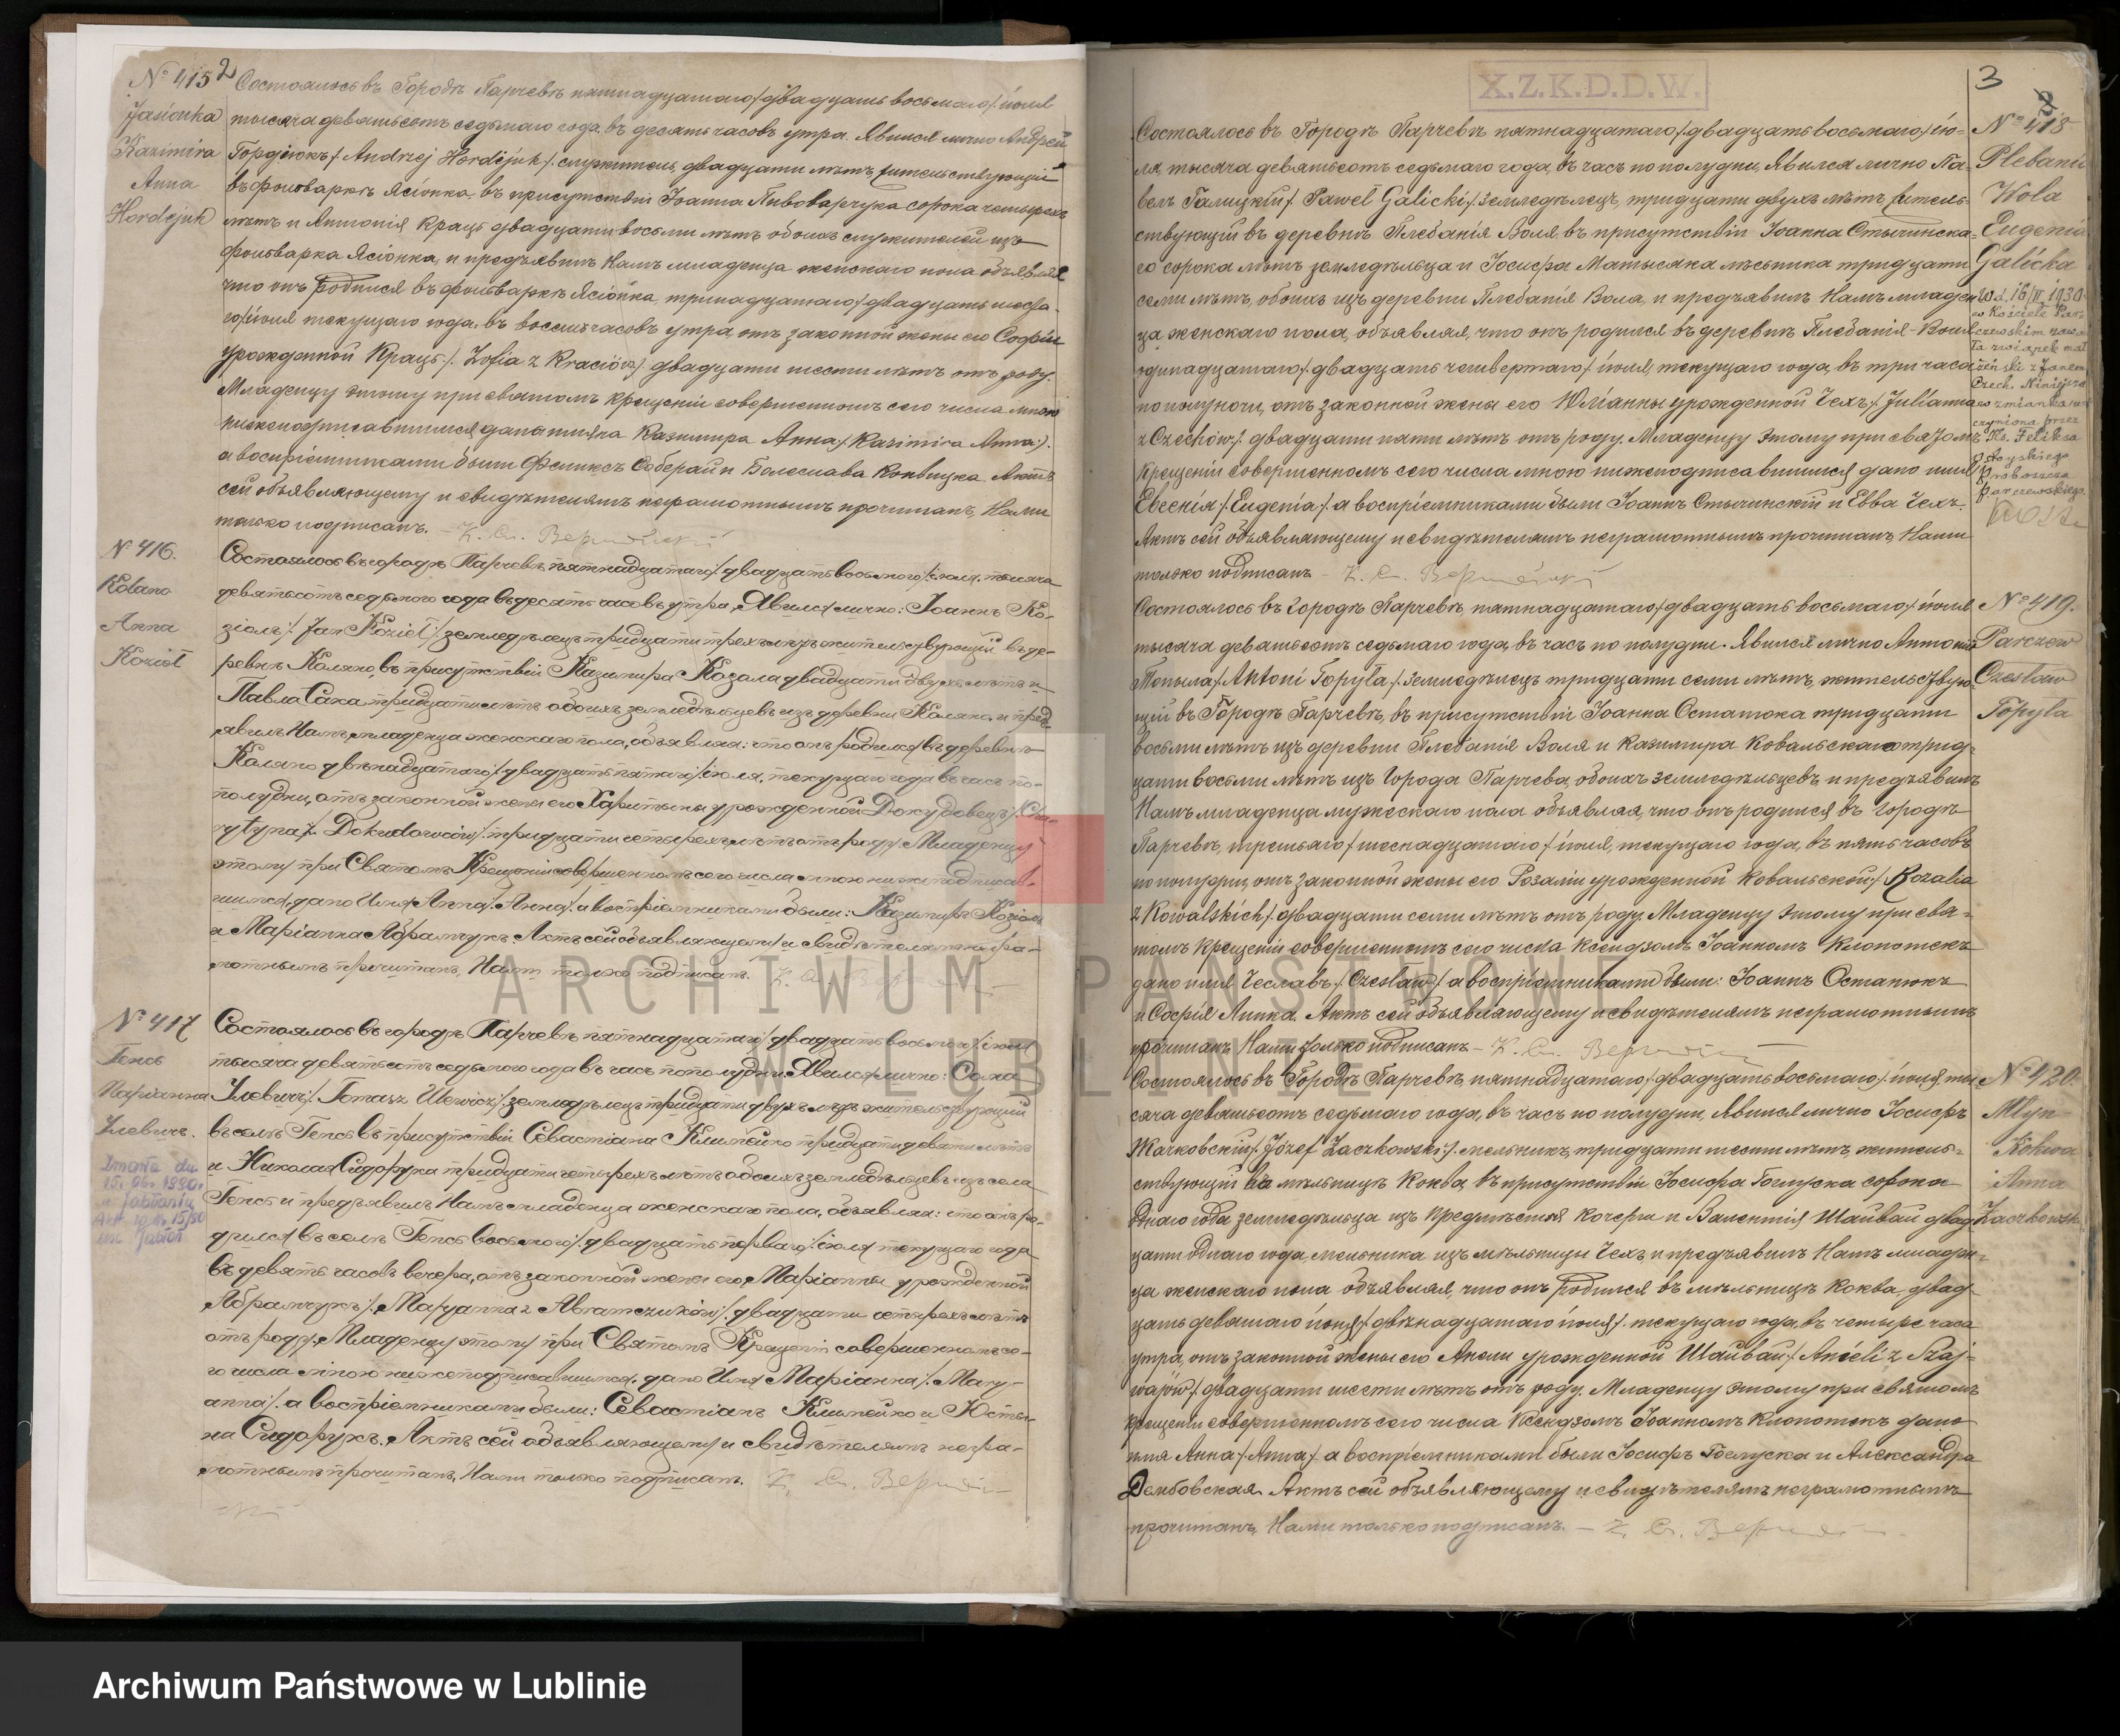 2
№ 415
Jasionka
Kazimira
Anna
Hordejuk
Состоялось въ Городѣ Парчевѣ пятнадцатаго /двадцать восьмаго/ іюля
тысяча девятьсотъ седьмаго года, въ десять часовъ утра. Явился лично Андрей
Гордѣюкъ /Andrzej Hordejuk/ служитель, двадцати лѣтъ, жительствующій
въ фольваркѣ Ясіонка, въ присутствіи Іоанна Пивоварчука сорока четырехъ
лѣтъ и Антонія Крацъ двадцати восьми лѣтъ обоихъ служителей изъ
фольварка Ясіонка, и предъявилъ Намъ младенца женскаго пола объявляя
что онъ родился въ фольваркѣ Ясіонка тринадцатаго /двадцать шеста-
го/ іюля текущаго года, въ восемь часовъ утра, отъ законной жены его Софіи
урожденной Крацъ /Zofia z Kraców/ двадцати шести лѣтъ отъ роду.
Младенцу этому при святомъ крещеніи совершенномъ сего числа мною
нижеподписавшимся даны имяна Казимира Анна /Kazimira Anna/.
а воспріемниками были Феликсъ Соберай и Болеслава Коквицка. Актъ
сей объявляющему и свидѣтелямъ неграмотнымъ прочитанъ, Нами
только подписанъ. –
№ 416.
Kolano
Anna
Kozioł
Состоялось въ городѣ Парчевѣ пятнадцатаго /двадцать восьмого/ іюля, тысяча
девятьсотъ седьмого года въ десять часовъ утра, Явился лично: Іоаннъ Ко-
зіолъ /Jan Kozioł/ земледѣлецъ тридцати трехъ лѣтъ жительствующій въ де-
ревнѣ Коляно, въ присутствіи Казимира Козала двадцати двухъ лѣтъ и
Павла Сака тридцати лѣтъ обоихъ земледѣльцевъ изъ деревни Коляно, и пред-
явилъ Намъ младенца женскаго пола, объявляя: что онъ родился въ деревнѣ
Коляно двѣнадцатаго /двадцать пятаго/ іюля, текущаго года въ часъ по-
полудни, отъ законной жены его Харитыны урожденной Докудовецъ /Cha-
rytyna z Dokudowców/ тридцати четырехъ лѣтъ отъ роду. Младенцу
этому при Святомъ Крещеніи совершенномъ сего числа мною нижеподписав-
шимся, дано Имя Анна /Anna/ а воспріемниками были: Казимиръ Козіолъ
и Маріанна Абрамчукъ. Актъ сей объявляющему и свидѣтелямъ негра-
мотнымъ прочитанъ, Нами только подписанъ.
№ 417
Генсь
Маріанна
Улевичъ.
Zmarła dn.
15.
w Jabłoniu
Akt zg. № 15/90
usc Jabłoń
Состоялось въ городѣ Парчевѣ пятнадцатаго /двадцать восьмого/ іюля
тысяча девятьсотъ седьмого года въ часъ по полудни Явился лично: Фома
Улевичъ /Tomasz Ulewicz/ земледѣлецъ тридцати двухъ лѣтъ жительствующій
въ селѣ Генсь въ присутствіи Севастіана Климпейко тридцати девяти лѣтъ
и Николая Сидорука тридцати четырехъ лѣтъ обоихъ земледѣльцевъ изъ села
Генсь и предъявилъ Намъ младенца женскаго пола, объявляя: что онъ ро-
дился въ селѣ Генсь восьмого /двадцать перваго/ іюля текущаго года
въ девять часовъ вечера, отъ законной жены его Маріанны урожденной
Абрамчукъ /Maryanna z Abramczuków/ двадцати четырехъ лѣтъ
отъ роду. Младенцу этому при Святомъ Крещеніи совершенномъ се-
го числа мною нижеподписавшимся, дано Имя Маріанна /Mary-
anna/. а воспріемниками были: Севастіанъ Климпейко и Юсты-
на Сидорукъ. Актъ сей объявляющему и свидѣтелямъ негра-
мотнымъ прочитанъ, Нами только подписанъ.
X.Z.K.D.D.W.
3
№ 418
Plebania
Wola
Eugenia
Galicka
W d. 16/II 1930
w Kościele Par-
czewskim zawar-
ła związek mał-
żeński z Janem
Czech. Niniejsza
wzmianka u-
czyniona przez
Ks. Feliksa
proboszcza
parczewskiego.
Состоялось въ Городѣ Парчевѣ пятнадцатаго /двадцать восьмаго/ ію-
ля тысяча девятьсотъ седьмаго года, въ часъ по полудни, Явился лично Па-
велъ Галицкій /Paweł Galicki/ земледѣлецъ, тридцати двухъ лѣтъ, житель-
ствующій въ деревнѣ Плебанія Воля въ присутствіи Іоанна Стычинска-
го сорока лѣтъ земледѣльца и Іосифа Матысяка лѣсника тридцати
семи лѣтъ, обоихъ изъ деревни Плебанія Воля, и предъявилъ Намъ младен-
ца женскаго пола, объявляя, что онъ родился въ деревнѣ Плебанія-Воля
одинадцатаго /двадцать четвертаго/ іюля, текущаго года, въ три часа
пополуночи, отъ законной жены его Юліанны урожденной Чехъ /Julianna
z Czechów/ двадцати пяти лѣтъ отъ роду. Младенцу этому при святомъ
крещеніи совершенномъ сего числа мною нижеподписавшимся дано имя
Евгенія /Eugenia/ а воспріемниками были Іоаннъ Стычинскій и Евва Чехъ.
Актъ сей объявляющему и свидѣтелямъ неграмотнымъ прочитанъ, Нами
только подписанъ –
№ 419.
Parczew
Czesław
Topyła
Состоялось въ Городѣ Парчевѣ, пятнадцатаго /двадцать восьмаго/ іюля
тысяча девятьсотъ седьмаго года, въ часъ по полудни. Явился лично Антоній
Топыла /Antoni Topyła/ земледѣлецъ тридцати семи лѣтъ, жительствую-
щій въ Городѣ Парчевѣ, въ присутствіи Іоанна Остатюка тридцати
восьми лѣтъ изъ деревни Плебанія Воля и Казимира Ковальскаго трид-
цати восьми лѣтъ изъ Города Парчева, обоихъ земледѣльцевъ, и предъявилъ
Намъ младенца мужескаго пола объявляя, что онъ родился въ Городѣ
Парчевѣ, третьяго /шеснадцатаго/ іюля, текущаго года, въ пять часовъ
по полудни, отъ законной жены его Розаліи урожденной Ковальской /Rozalia
z Kowalskich/ двадцати семи лѣтъ отъ роду. Младенцу этому при свя-
томъ крещеніи совершенномъ сего числа Ксендзомъ Іоанномъ Клопотекъ
дано имя Чеславъ /Czesław/ а воспріемниками были: Іоаннъ Остатюкъ
и Софія Липка. Актъ сей объявляющему и свидѣтелямъ неграмотнымъ
прочитанъ, Нами только подписанъ –
№ 420.
Młyn
Kokwa
Anna
Żaczkowska
Состоялось въ Городѣ Парчевѣ, пятнадцатаго /двадцать восьмаго/ іюля, ты-
сяча девятьсотъ седьмаго года, въ часъ по полудни, Явился лично Іосифъ
Жачковскій /Józef Żaczkowski/ мельникъ, тридцати шести лѣтъ, житель-
ствующій въ мѣльницѣ Коква, въ присутствіи Іосифа Гоелуска сорока
однаго года земледѣльца изъ предмѣстья Кочерги и Валентія Шайвай двад-
цати однаго года, мельника изъ мѣльницы Чехъ, и предъявилъ Намъ младен-
ца женскаго пола объявляя, что онъ родился въ мѣльницѣ Коква, двад-
цать девятаго іюня /двѣнадцатаго іюля/ текущаго года, въ четыре часа
утра, отъ законной жены его Анели урожденной Шайвай /Anieli z Szaj-
wajów/ двадцати шести лѣтъ отъ роду. Младенцу этому при святомъ
крещеніи совершенномъ сего числа Ксендзомъ Іоанномъ Клопотекъ дано
имя Анна /Anna/ а воспріемниками были Іосифъ Гоелуска и Александра
Дембовская. Актъ сей объявляющему и свидѣтелямъ неграмотнымъ
прочитанъ, Нами только подписанъ. –
ARCHIWUM PAŃSTWOWE
W LUBLINIE
Archiwum Państwowe w Lublinie